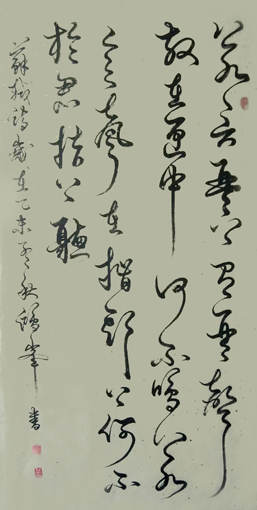 若言琴上有琴聲
放在匣中何不鳴若
言聲在指頭上何不
於君指上聽
蘇軾詩歲在乙未秋峰書